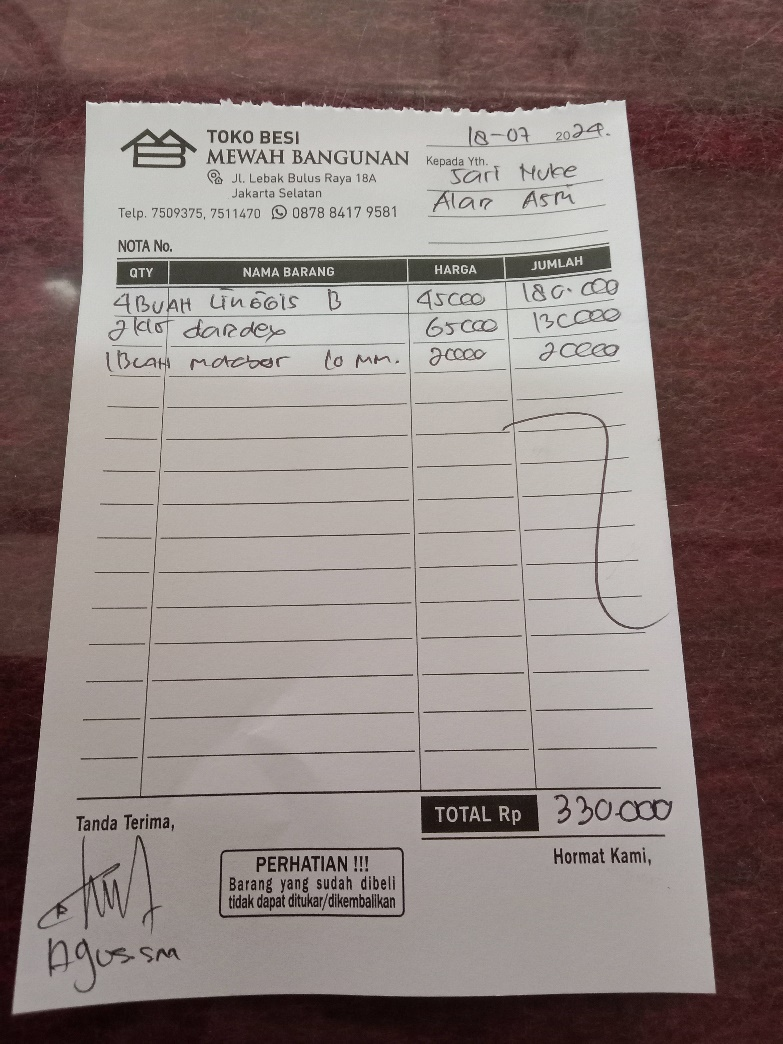 TOKO BESI
MEWAH BANGUNAN
Jl. Lebak Bulus Raya 18A
Jakarta Selatan
Telp. 7509375, 7511470 0878 8417 9581
18-07 2024.
Kepada Yth.
Sari Muke
Alan Asri
NOTA No.
QTY NAMA BARANG HARGA JUMLAH
4 BUAH LINGGIS B 45000 180.000
2 kilo dandex 65000 130000
1 BUAH matabor 10 MM. 20000 20000
TOTAL Rp 330.000
Tanda Terima,
Hormat Kami,
PERHATIAN !!!
Barang yang sudah dibeli
tidak dapat ditukar/dikembalikan
Agus.sm